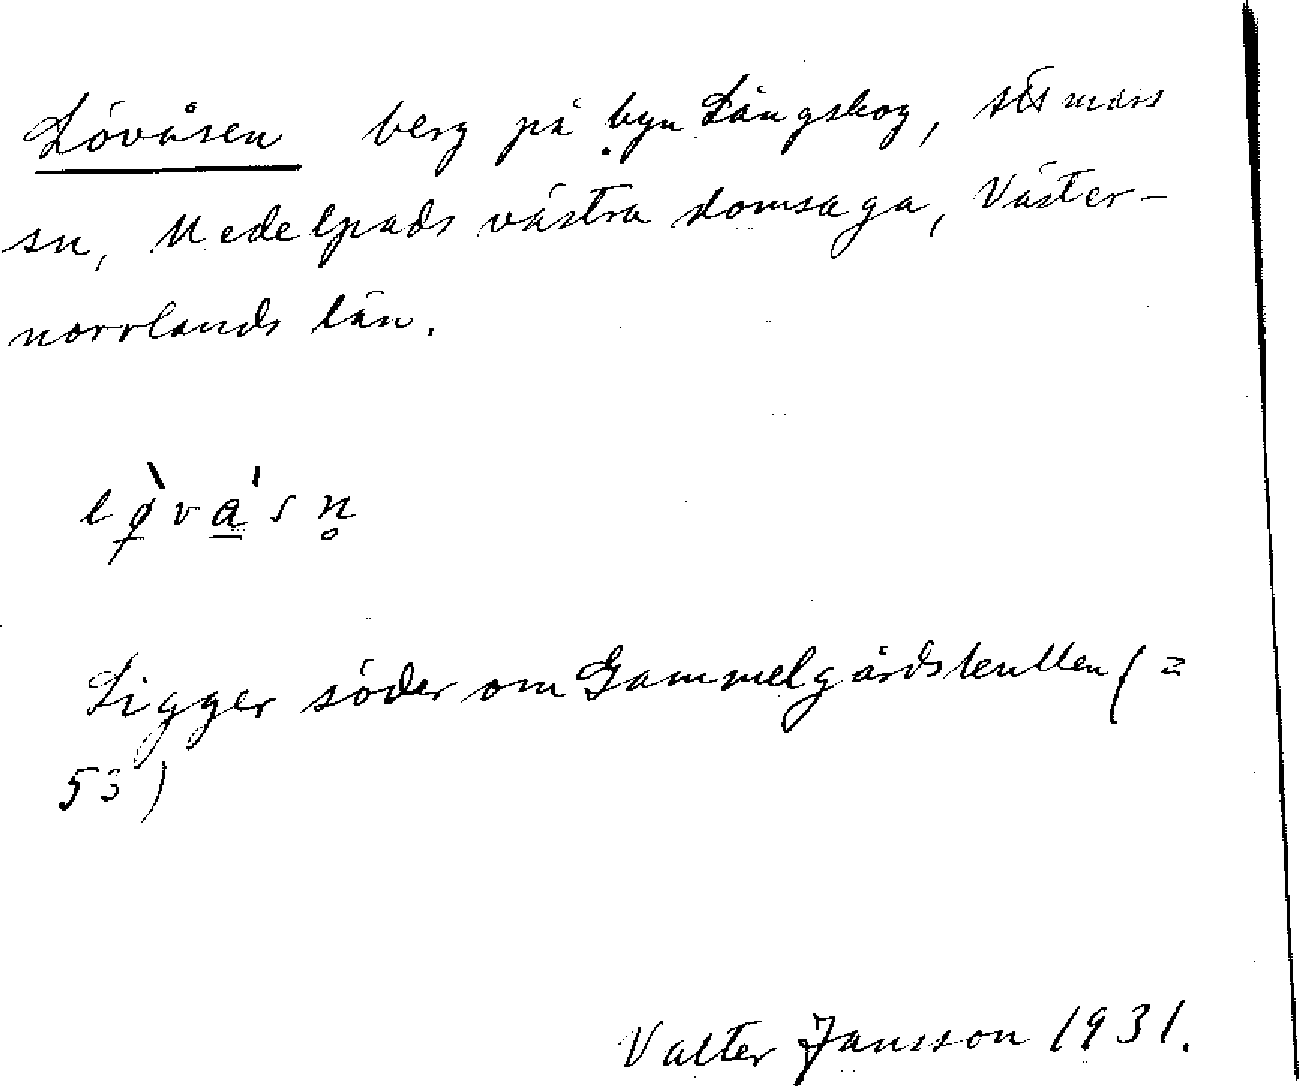 Lövåsen berg på byn Långskog, Stömärs
sn, Medelpads västra domsaga, Väster-
norrlands län.
lø̀va̍sn̥
Ligger söder om Gammelgårdskullen (=
53)
Valter Jansson 1931.